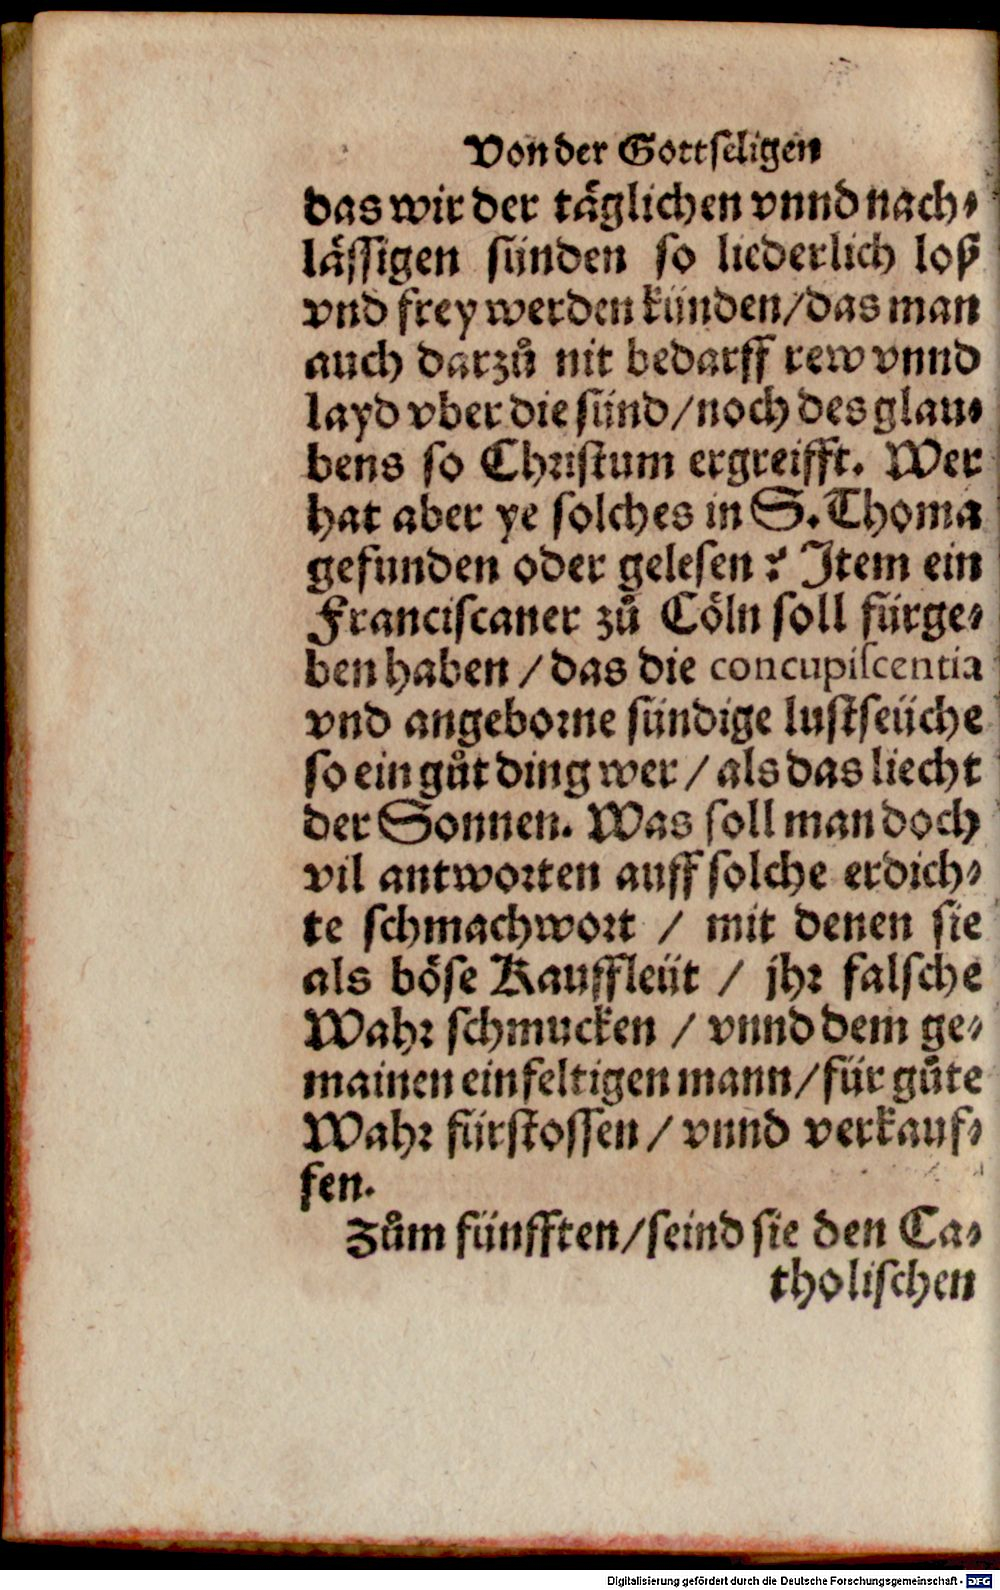 Von der Gottseligen
das wir der täglichen vnnd nach⸗
lässigen sünden so liederlich loß
vnd frey werden künden/das man
auch darzů nit bedarff rew vnnd
layd vber die sünd/noch des glau⸗
bens so Christum ergreifft. Wer
hat aber ye solches in S. Thoma
gefunden oder gelesen? Item ein
Franciscaner zů Cöln soll fürge⸗
ben haben / das die concupiscentia
vnd angeborne sündige lustseüche
so ein gůt ding wer / als das liecht
der Sonnen. Was soll man doch
vil antworten auff solche erdich⸗
te schmachwort / mit denen sie
als böse Kauffleüt / jhr falsche
Wahr schmucken / vnnd dem ge⸗
mainen einfeltigen mann/für gůte
Wahr fürstossen / vnnd verkauf⸗
fen.
Zům fünfften/seind sie den Ca⸗
tholischen
Digitalisierung gefördert durch die Deutsche Forschungsgemeinschaft - DFG